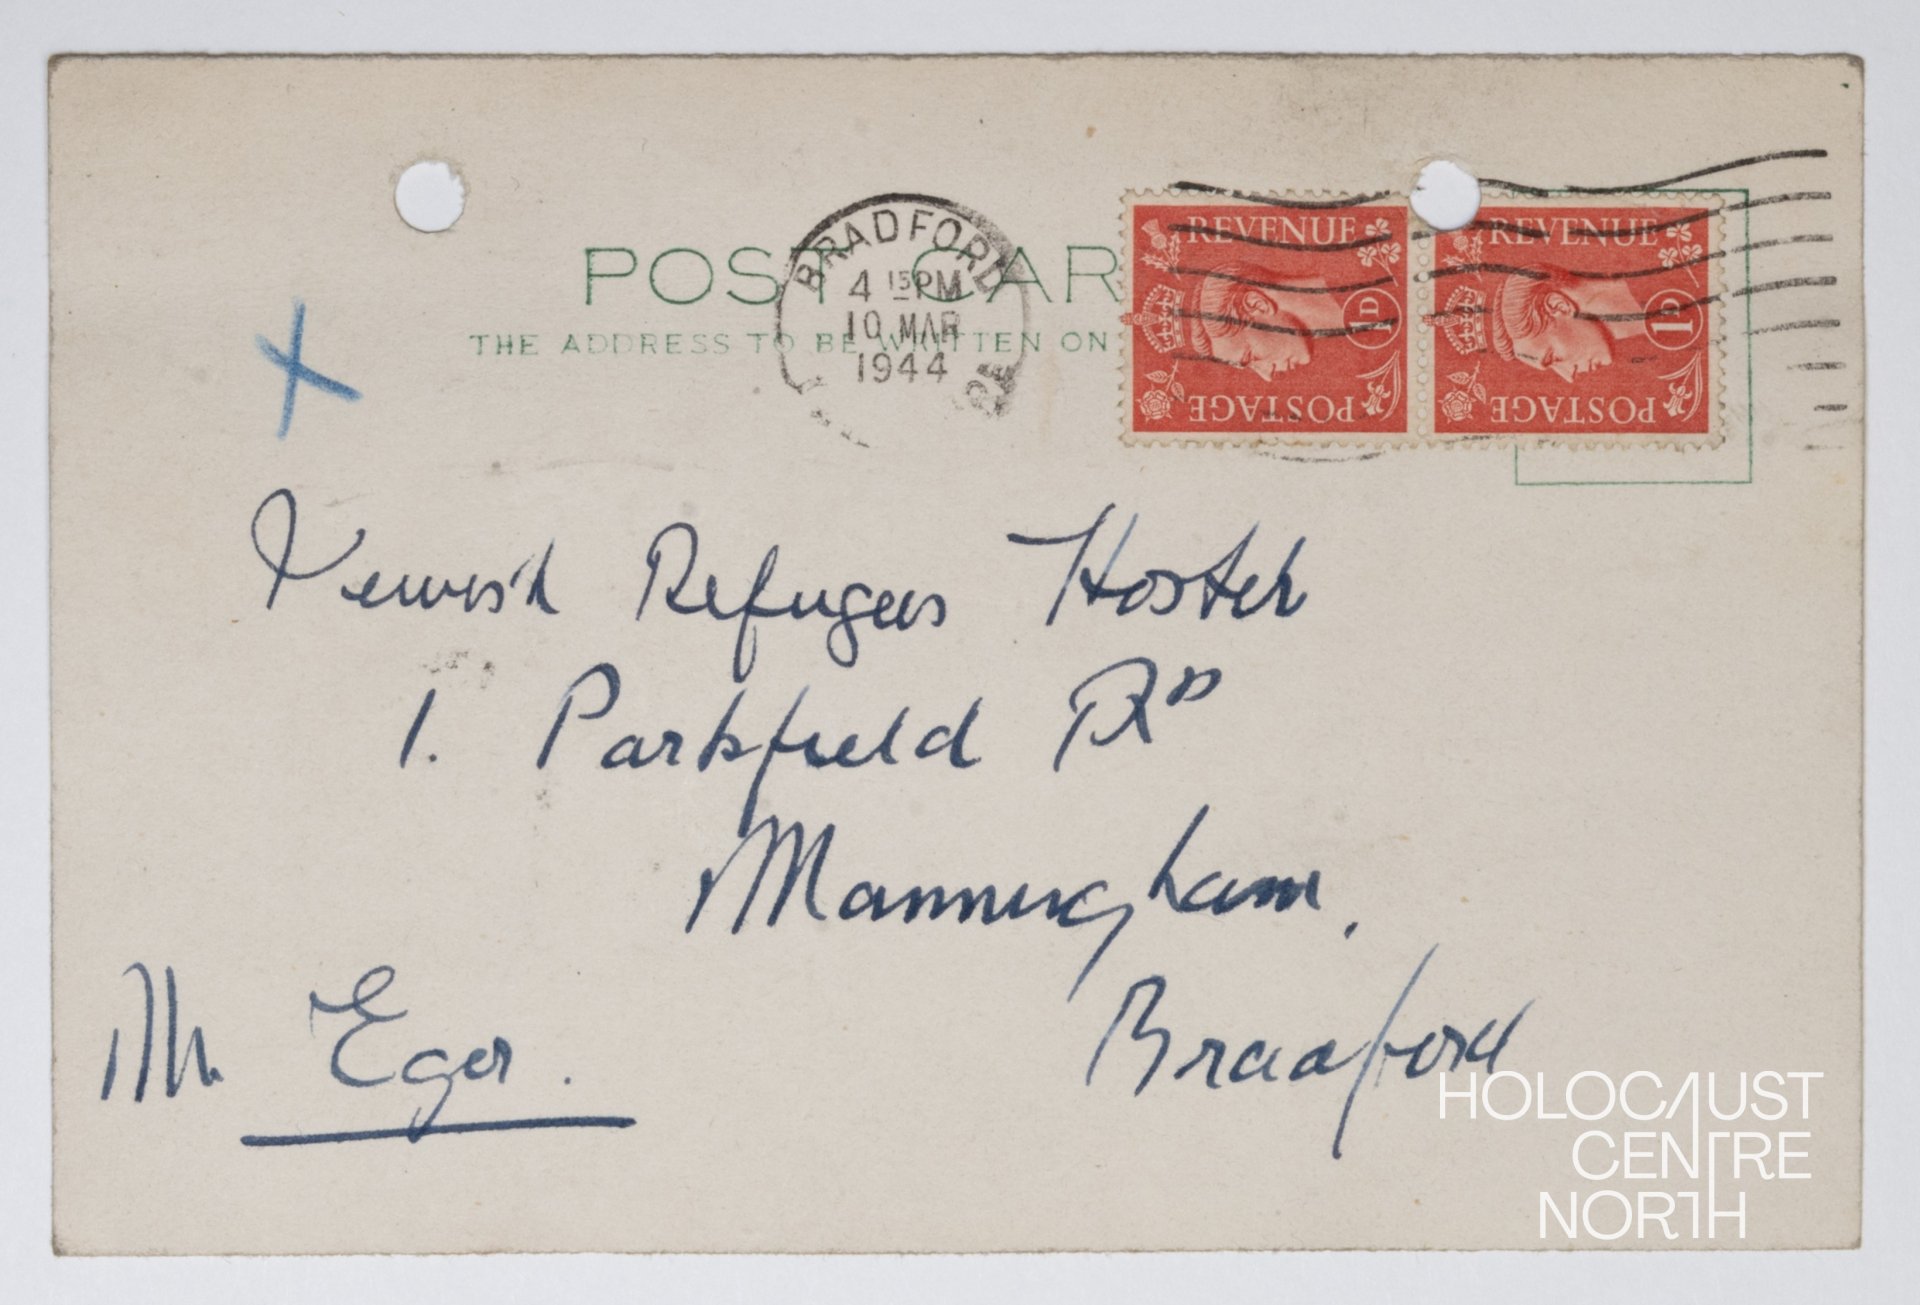 POST CAR
THE ADDRESS TO BE WRITTEN ON
BRADFORD
4 15 PM
10 MAR
1944
REVENUE
1D
POSTAGE
REVENUE
1D
POSTAGE
X
Jewish Refugees Hostel
1. Parkfield RD
Manningham.
Bradford
Mr Eger.
HOLOCAUST
CENTRE
NORTH